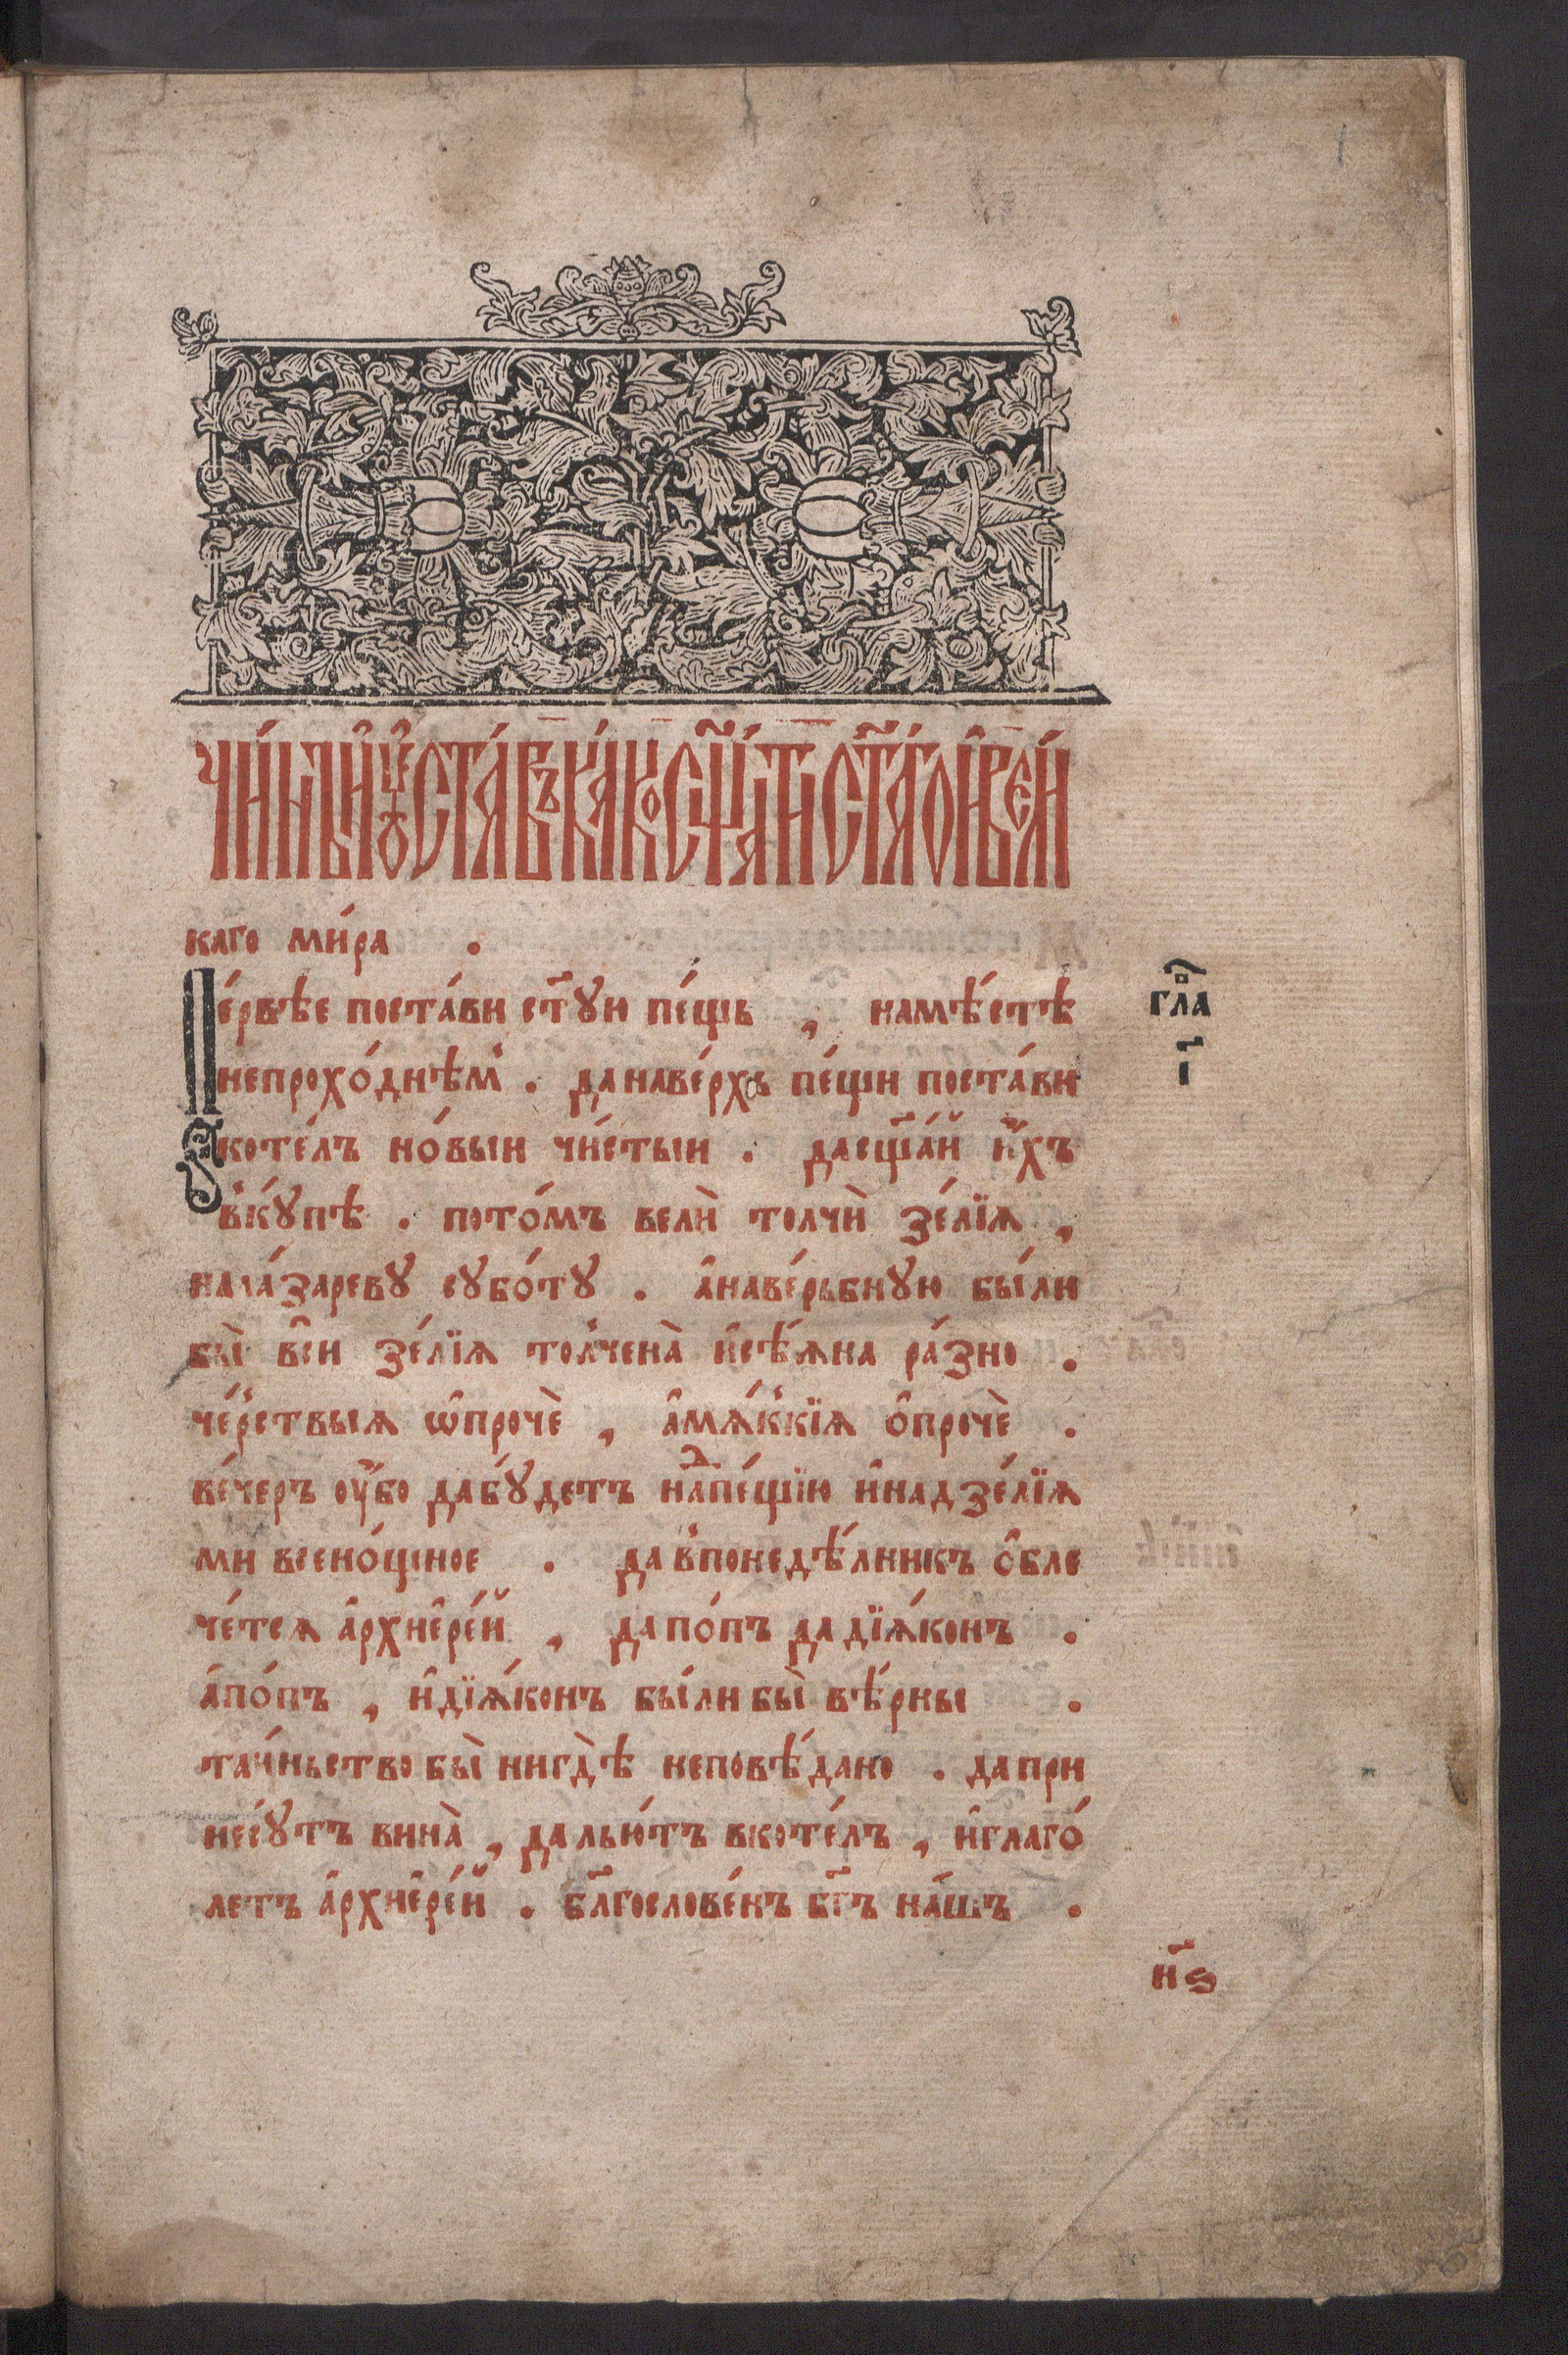 чи́нъ и҆ ᲂу҆ста́въ ка́ко сщ҃а́ти ст҃а́го и҆ вели́
каго ми́ра .
Пе́рвѣе поста́ви ст҃ꙋю пе́щь , намѣ́стѣ
непрохо́днѣм . да наве́рхъ пе́щи поста́ви
коте́лъ но́выи чи́стыи . да сщ҃а́й и҆́хъ
вкꙋ́пѣ . пото́мъ велѝ толчѝ зе́лїѧ ,
на ла́зареву сꙋбо́тꙋ . а҆наве́рьбнꙋю бы́ли
бы̀ всѝ зе́лїѧ толченà и҆сѣ́ѧна ра́зно .
че́рствыѧ ѡ҆прочѐ , а҆мѧ́ккїѧ о҆прочѐ .
ве́черъ ᲂу҆́бо да бꙋ́детъ на́дпе́щїю и҆над зе́лїѧ
ми всено́щное . да впонедѣ́лникъ о҆бле
че́тсѧ а҆рхиере́й , да по́пъ да дїѧ́конъ .
а҆по́пъ , и҆дїѧ́конъ бы́ли бы̀ вѣ́рны .
таи́ньство бы̀ нигдѣ̀ неповѣ́дано . да при
несꙋ́тъ винà , да лью́тъ вкоте́лъ , и҆глаго́
летъ а҆рхиере́й . бл҃гослове́нъ бг҃ъ на́шъ .
гла҃
і҃
н҃ѕ
1